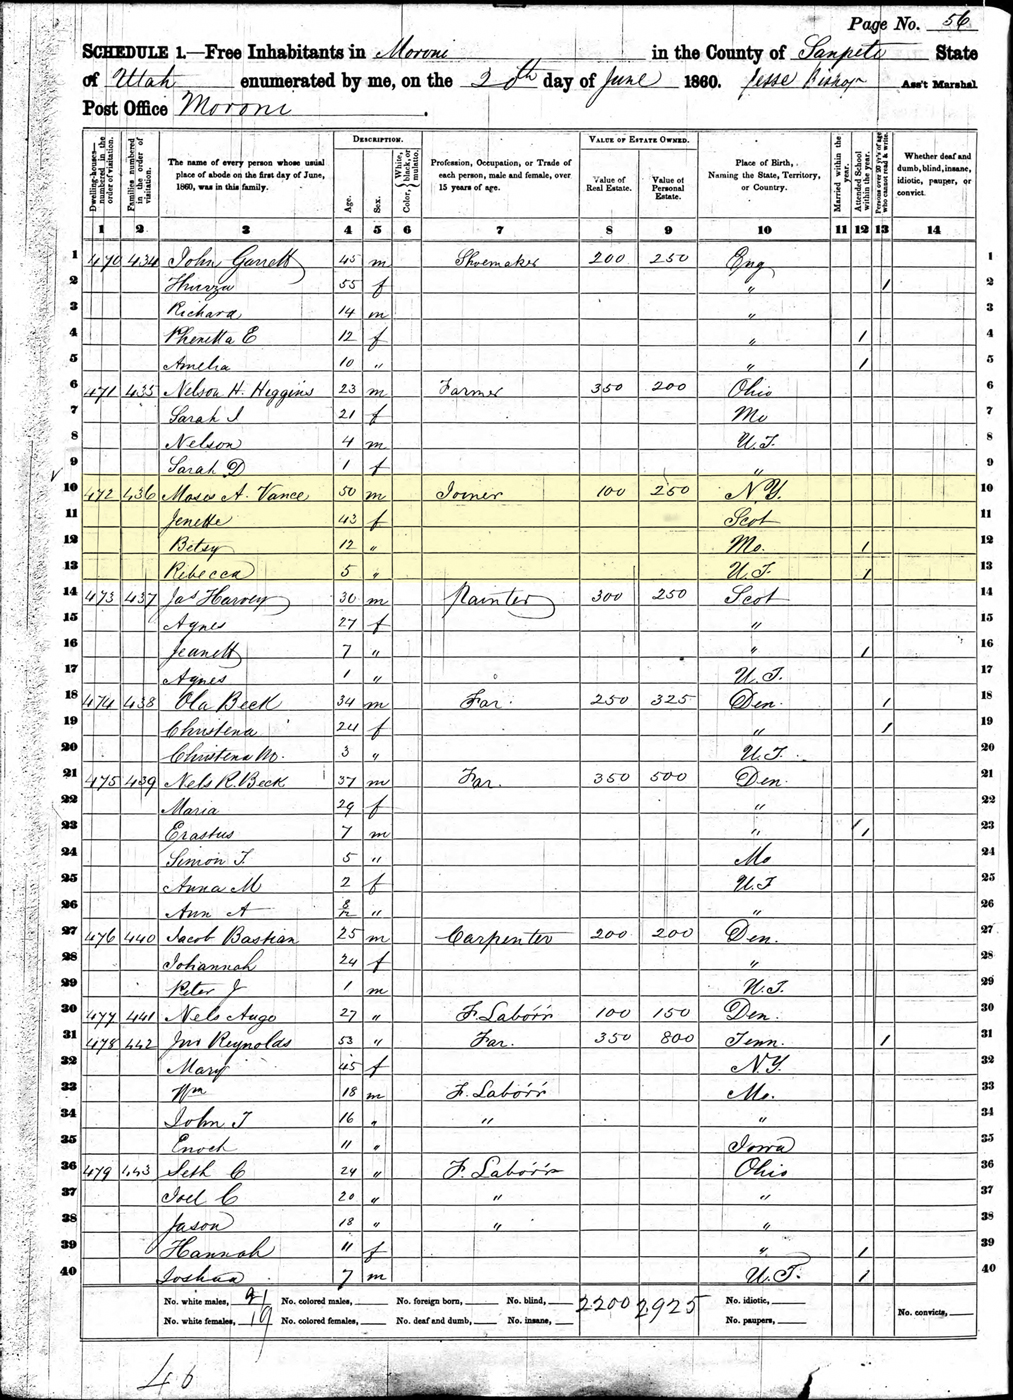 Page No. 56
SCHEDULE 1.—Free Inhabitants in Moroni in the County of Sanpete State
of Utah enumerated by me, on the 20th day of June 1860. Jesse Bishop Ass't Marshal
Post Office Moroni.
Dwelling-houses—numbered in the order of visitation.
Families numbered in the order of visitation.
The name of every person whose usual place of abode on the first day of June, 1860, was in this family.
DESCRIPTION.
Age.
Sex.
Color, { White, black, or mulatto.
Profession, Occupation, or Trade of each person, male and female, over 15 years of age.
VALUE OF ESTATE OWNED.
Value of Real Estate.
Value of Personal Estate.
Place of Birth, Naming the State, Territory, or Country.
Married within the year.
Attended School within the year.
Persons over 20 y'rs of age who cannot read & write.
Whether deaf and dumb, blind, insane, idiotic, pauper, or convict.
1 2 3 4 5 6 7 8 9 10 11 12 13 14
1 470 434 John Garrett 45 m Shoemaker 200 250 Eng 1
2 Thurza 55 f " / 2
3 Richard 14 m " 3
4 Phenetta E 12 f " / 4
5 Amelia 10 " " / 5
6 471 435 Nelson H. Higgins 23 m Farmer 350 200 Ohio 6
7 Sarah I 21 f Mo 7
8 Nelson 4 m U.T. 8
9 Sarah D 1 f " 9
10 472 436 Moses A. Vance 50 m Joiner 100 250 N.Y. 10
11 Jenette 43 f Scot 11
12 Betsy 12 " Mo. / 12
13 Rebecca 5 " U.T. / 13
14 473 437 Jas Harvey 30 m Painter 300 250 Scot 14
15 Agnes 27 f " 15
16 Jeanett 7 " " / 16
17 Agnes 1 " U.T. 17
18 474 438 Ola Beck 34 m Far. 250 325 Den. / 18
19 Christena 24 f " / 19
20 Christena M. 3 " U.T. 20
21 475 439 Nels R. Beck 37 m Far. 350 500 Den. 21
22 Maria 29 f " 22
23 Erastus 7 m " / 23
24 Simon T. 5 " Mo 24
25 Anna M 2 f U.T 25
26 Ann A 8/12 " " 26
27 476 440 Jacob Bastian 25 m Carpenter 200 200 Den. 27
28 Johannah 24 f " 28
29 Peter J 1 m U.T. 29
30 477 441 Nels Augo 27 " F. Labor'r 100 150 Den. 30
31 478 442 Jno Reynolds 53 " Far. 350 800 Tenn. / 31
32 Mary 45 f N.Y. 32
33 Wm 18 m F. Labor'r Mo. 33
34 John T 16 " " " 34
35 Enoch 11 " Iowa 35
36 479 443 Seth C 24 " F. Labor'r Ohio 36
37 Joel C 20 " " " 37
38 Jason 18 " " " 38
39 Hannah 11 f " / 39
40 Joshua 7 m U.T. / 40
No. white males, 21 No. colored males, No. foreign born, No. blind, 2200 2,925 No. idiotic,
No. white females, 19 No. colored females, No. deaf and dumb, No. insane, No. paupers, No. convicts,
46